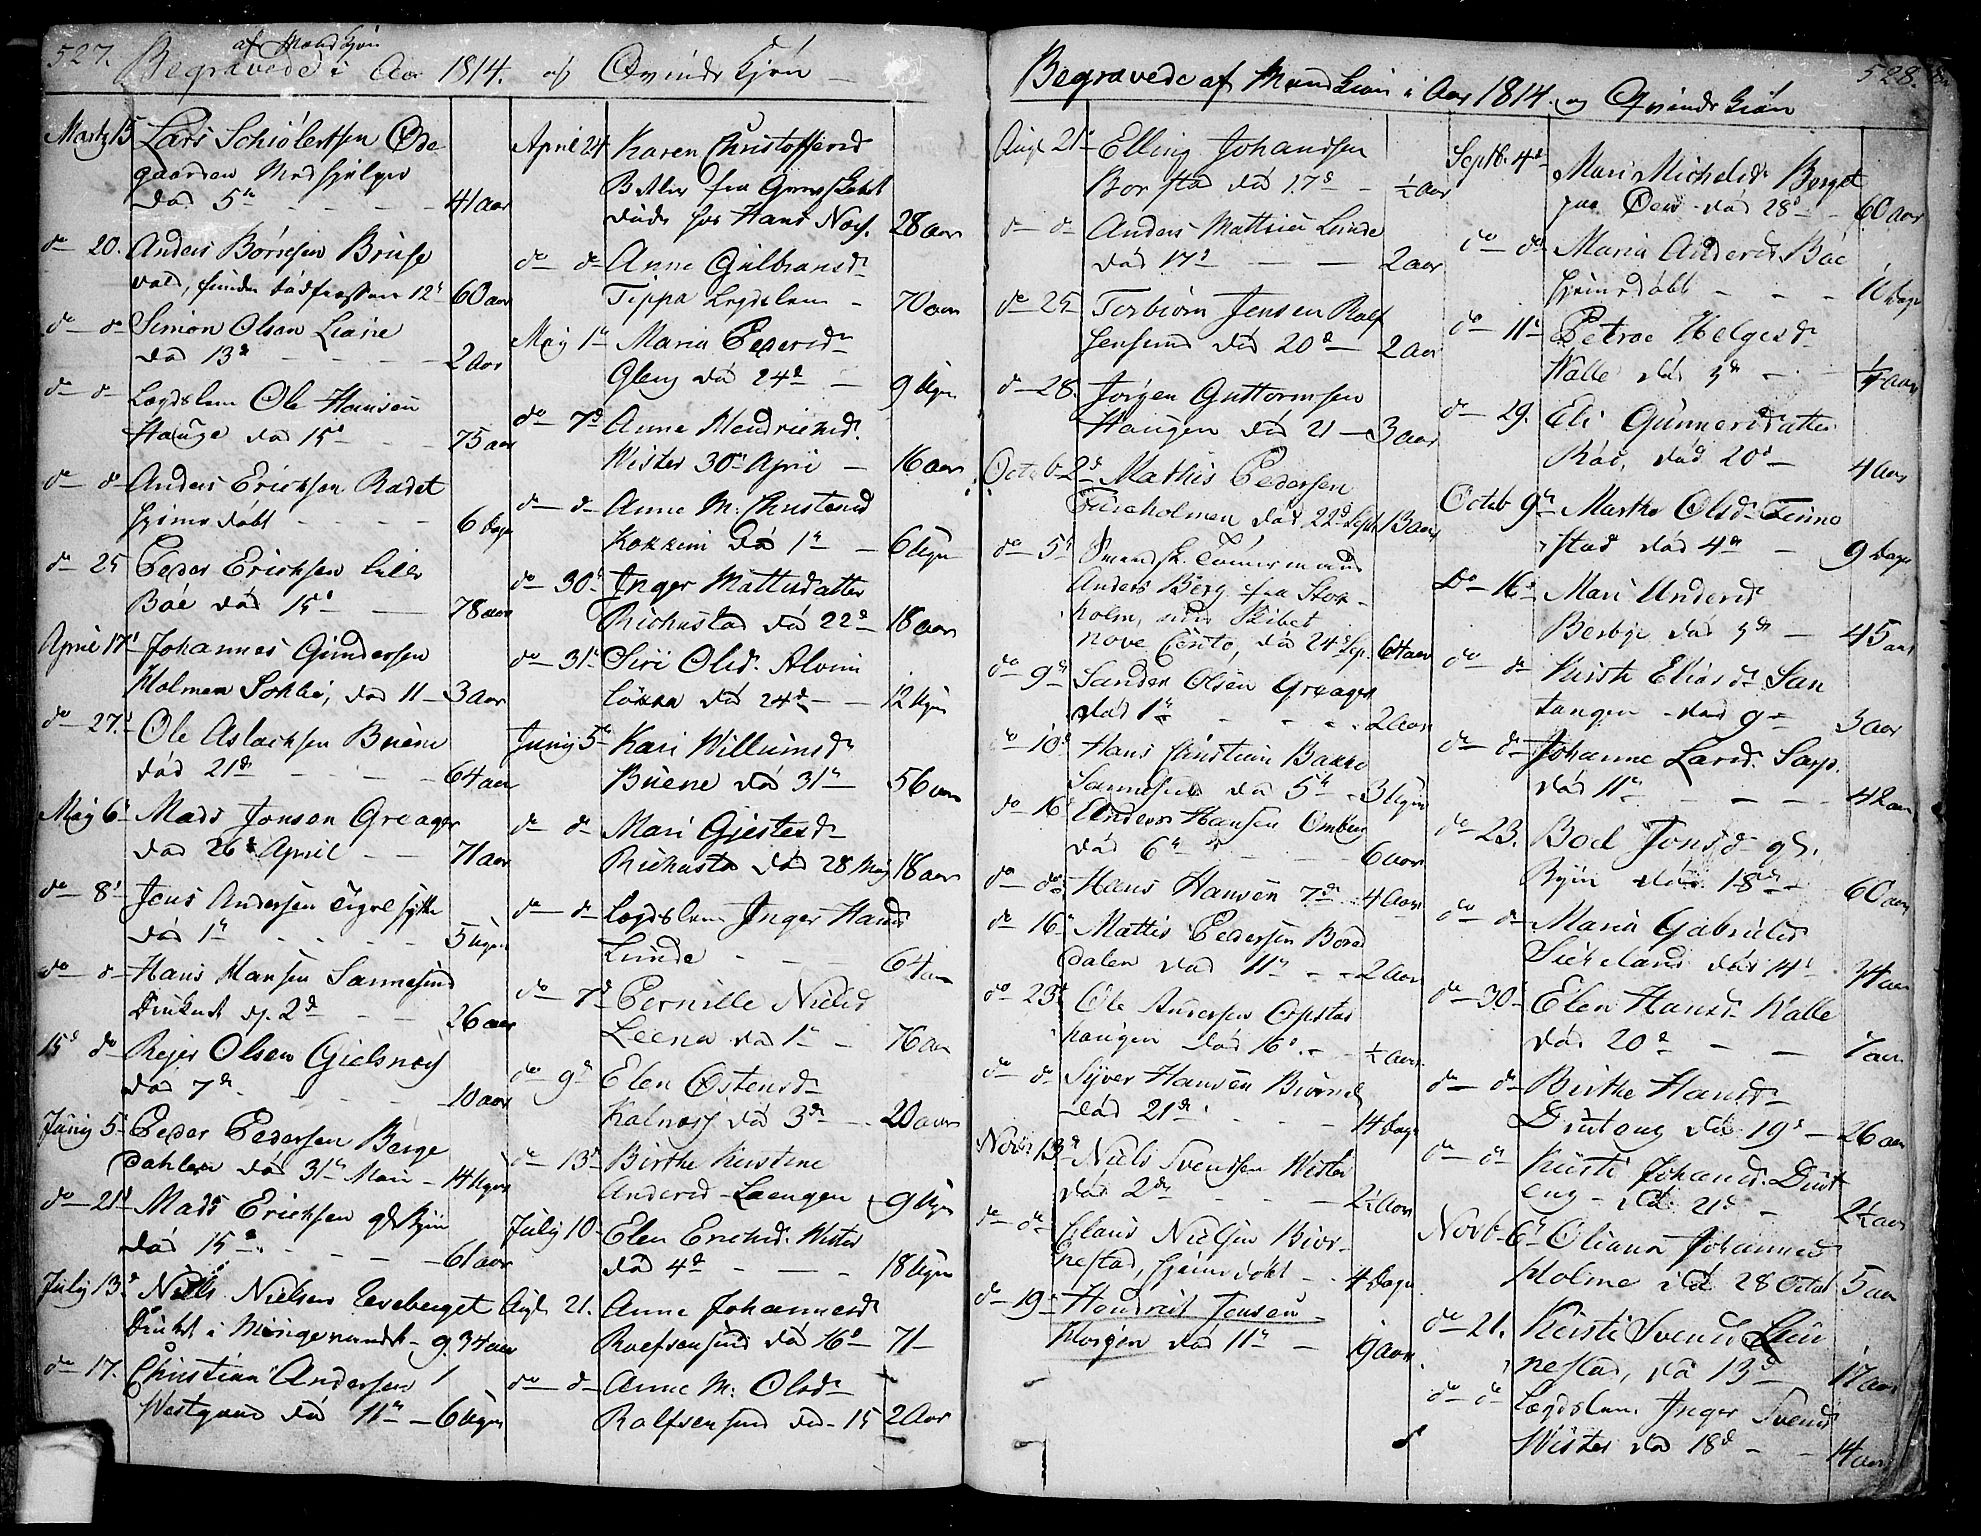 527. Begravede i Aar 1814. af Qvindekjøn
af Mandkjøn
Martz 15 Lars Schiølertsen Øde
gaarden
død 5te 41 aar
do 20. Anders Børresen Bruse
vold, 12te 60 aar
do do Simon Olsen
død 13de 2 Aar
do do Legdslem Ole Hansen
Hauge død 15d 75 aar
do do Anders Ericksen Rødet
hjemedøbt 6 dage
do 25 Peder Ericksen Lille
Bøe død 15d 78 aar
April 17d Johannes Gundersen
Holmen død 11 3 aar
do 27d Ole Aslachsen Buene
død 21de 64 aar
Maÿ 6te Mads Jonsen Greager
død 26de April 71 aar
do 8de Jens Andersen
død 1te 5 uger
do do Hans Hansen Sannesund
Druknet d. 2d 26 aar
15d do Rejer Olsen Gielsnes
død 7de 10 aar
Junÿ 5te Peder Pedersen Berge
dahlen død 31te Maii 14 uger
do 21d Mads Ericksen
død 15de 61 aar
Julÿ 13de Niels Nielsen
Druknet i Mingesundet 34 aar
do 17. Christian Andersen
Westgaard død 11te 6 uger
April 24 Karen Christoffersd
Betler fra
døde hos Hans Næs. 28 aar
do do Anne Gulbransd
Tippa Legdslem 70 aar
Maÿ 1te Maria Pedersd
Gleng død 24de 9 uger
do 7d Anne Hendrichsd.
Wister 30te April 16 aar
do do Anne M. Christensd
død 1te 6 uger
do 30te Inger Mattisdatter
Richustad død 22de 18 aar
do 31te Siri Olsd. Alvim
løkka død 24de 12 uger
Junÿ 5te Kari Williumsd
Buene død 31te 56 aar
do do Mari Gjestesd
Richustad død 28 Maÿ 18 aar
do do Legdslem Inger Hansd
Lunde 64 aar
do 7d Pernille Nielsd
Leena død 1te 76 aar
do 9d Elen Østensd
Kalnæs død 3de 20 aar
do 13d Birthe Kirstine
Andersd Laengen 9 uger
Julÿ 10 Elen Erichsd. Wister
død 4de 18 uger
Augt 21. Anne Johannesd
Roelfsøesund død 16d 71
do do Anne M. Olsd
Rolfsøesund død 15 2 Aar
528.
Begravede af Mandkiøn i Aar 1814. og Qvindekiøn
Augt 21de Elling Johansen
Borstad død 17d ½ aar
do do Anders Mattisen Lunde
død 17d 2 aar
do 25 Torbiørn Jensen Rolf
søesund død 20d 2 aar
do 28. Jørgen Guttormsen
Haugen død 21 3 aar
Octob 2d Mathis Pedersen
Furuholmen død 22d Sept 13 aar
do 5te Svendsk Tømmermand
Anders Berg fra Stok
holm, med Skibet
død 24d Sep. 64 aar
do 9de Sander Olsen Greager
død 1te 2 aar
do 10d Hans Christian Bakke
Sannesund død 5te 3 uger
do 16d Anders Hansen
død 6te 6 aar
do do Hans Hansen 7de 4 Aar
do 16te Mattis Pedersen Borre
dalen død 11te 2 aar
do 23de Ole Andersen Opstad
haugen død 16d ½ aar
do do Syver Hansen
død 21de 14 dage
Novb 13de Niels Svendsen Wister
død 2de 2½ Aar
do do Claus Nielsen Biør
nestad, hjemedøbt 4 dage
do 19de Hendrick Jensen
Horgen død 11te 9 aar
Septb. 4de Mari Michelsd. Berget
paa Øen død 28d 60 aar
do do Maria Andersd. Bøe
hjemedøbt 10 dage
do 11te Petroe Helgesd
Walle død 3de ¼ aar
do 29. Eli Gunnersdatter
Røe, død 20d 4 aar
Octob 9de Marthe Olsd. Tinno
stad død 4de 9 dage
Do 16de Mari Andersd
Besbye død 3de 45 aar
do do Kirsti Eliasd San
tangen død 9de 3 aar
do do Johanne Larsd. Sarp
død 11te 42 aar
do 23. Boel Jonsd.
død 18de 60 aar
do do Maria Gabrielsd
død 14d 74 aar
do 30d Elen Hansd Walle
død 20d 7 aar
do do Birthe Hansd
død 19d 26 aar
do do Kirsti Johansd.
død 21d 2½ aar
Novb 6te Oliana Johannesd
Holme død 28 Octob 5 aar
do 21. Kirsti Svensd
nestad, død 13d 17 aar
do do Legdslem Inger Svensd
Wister død 18d 14 aar